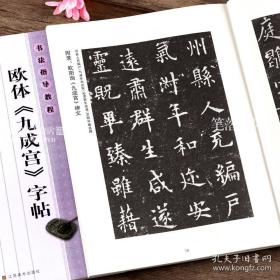 书法指导教程
欧体《九成宫》字帖
江苏美术出版社
附录：欧阳询《九成宫》碑文
州縣人充編戶
氣淑年和迩安
遠肅群生咸遂
靈貺畢臻雖藉
孔夫子旧书网